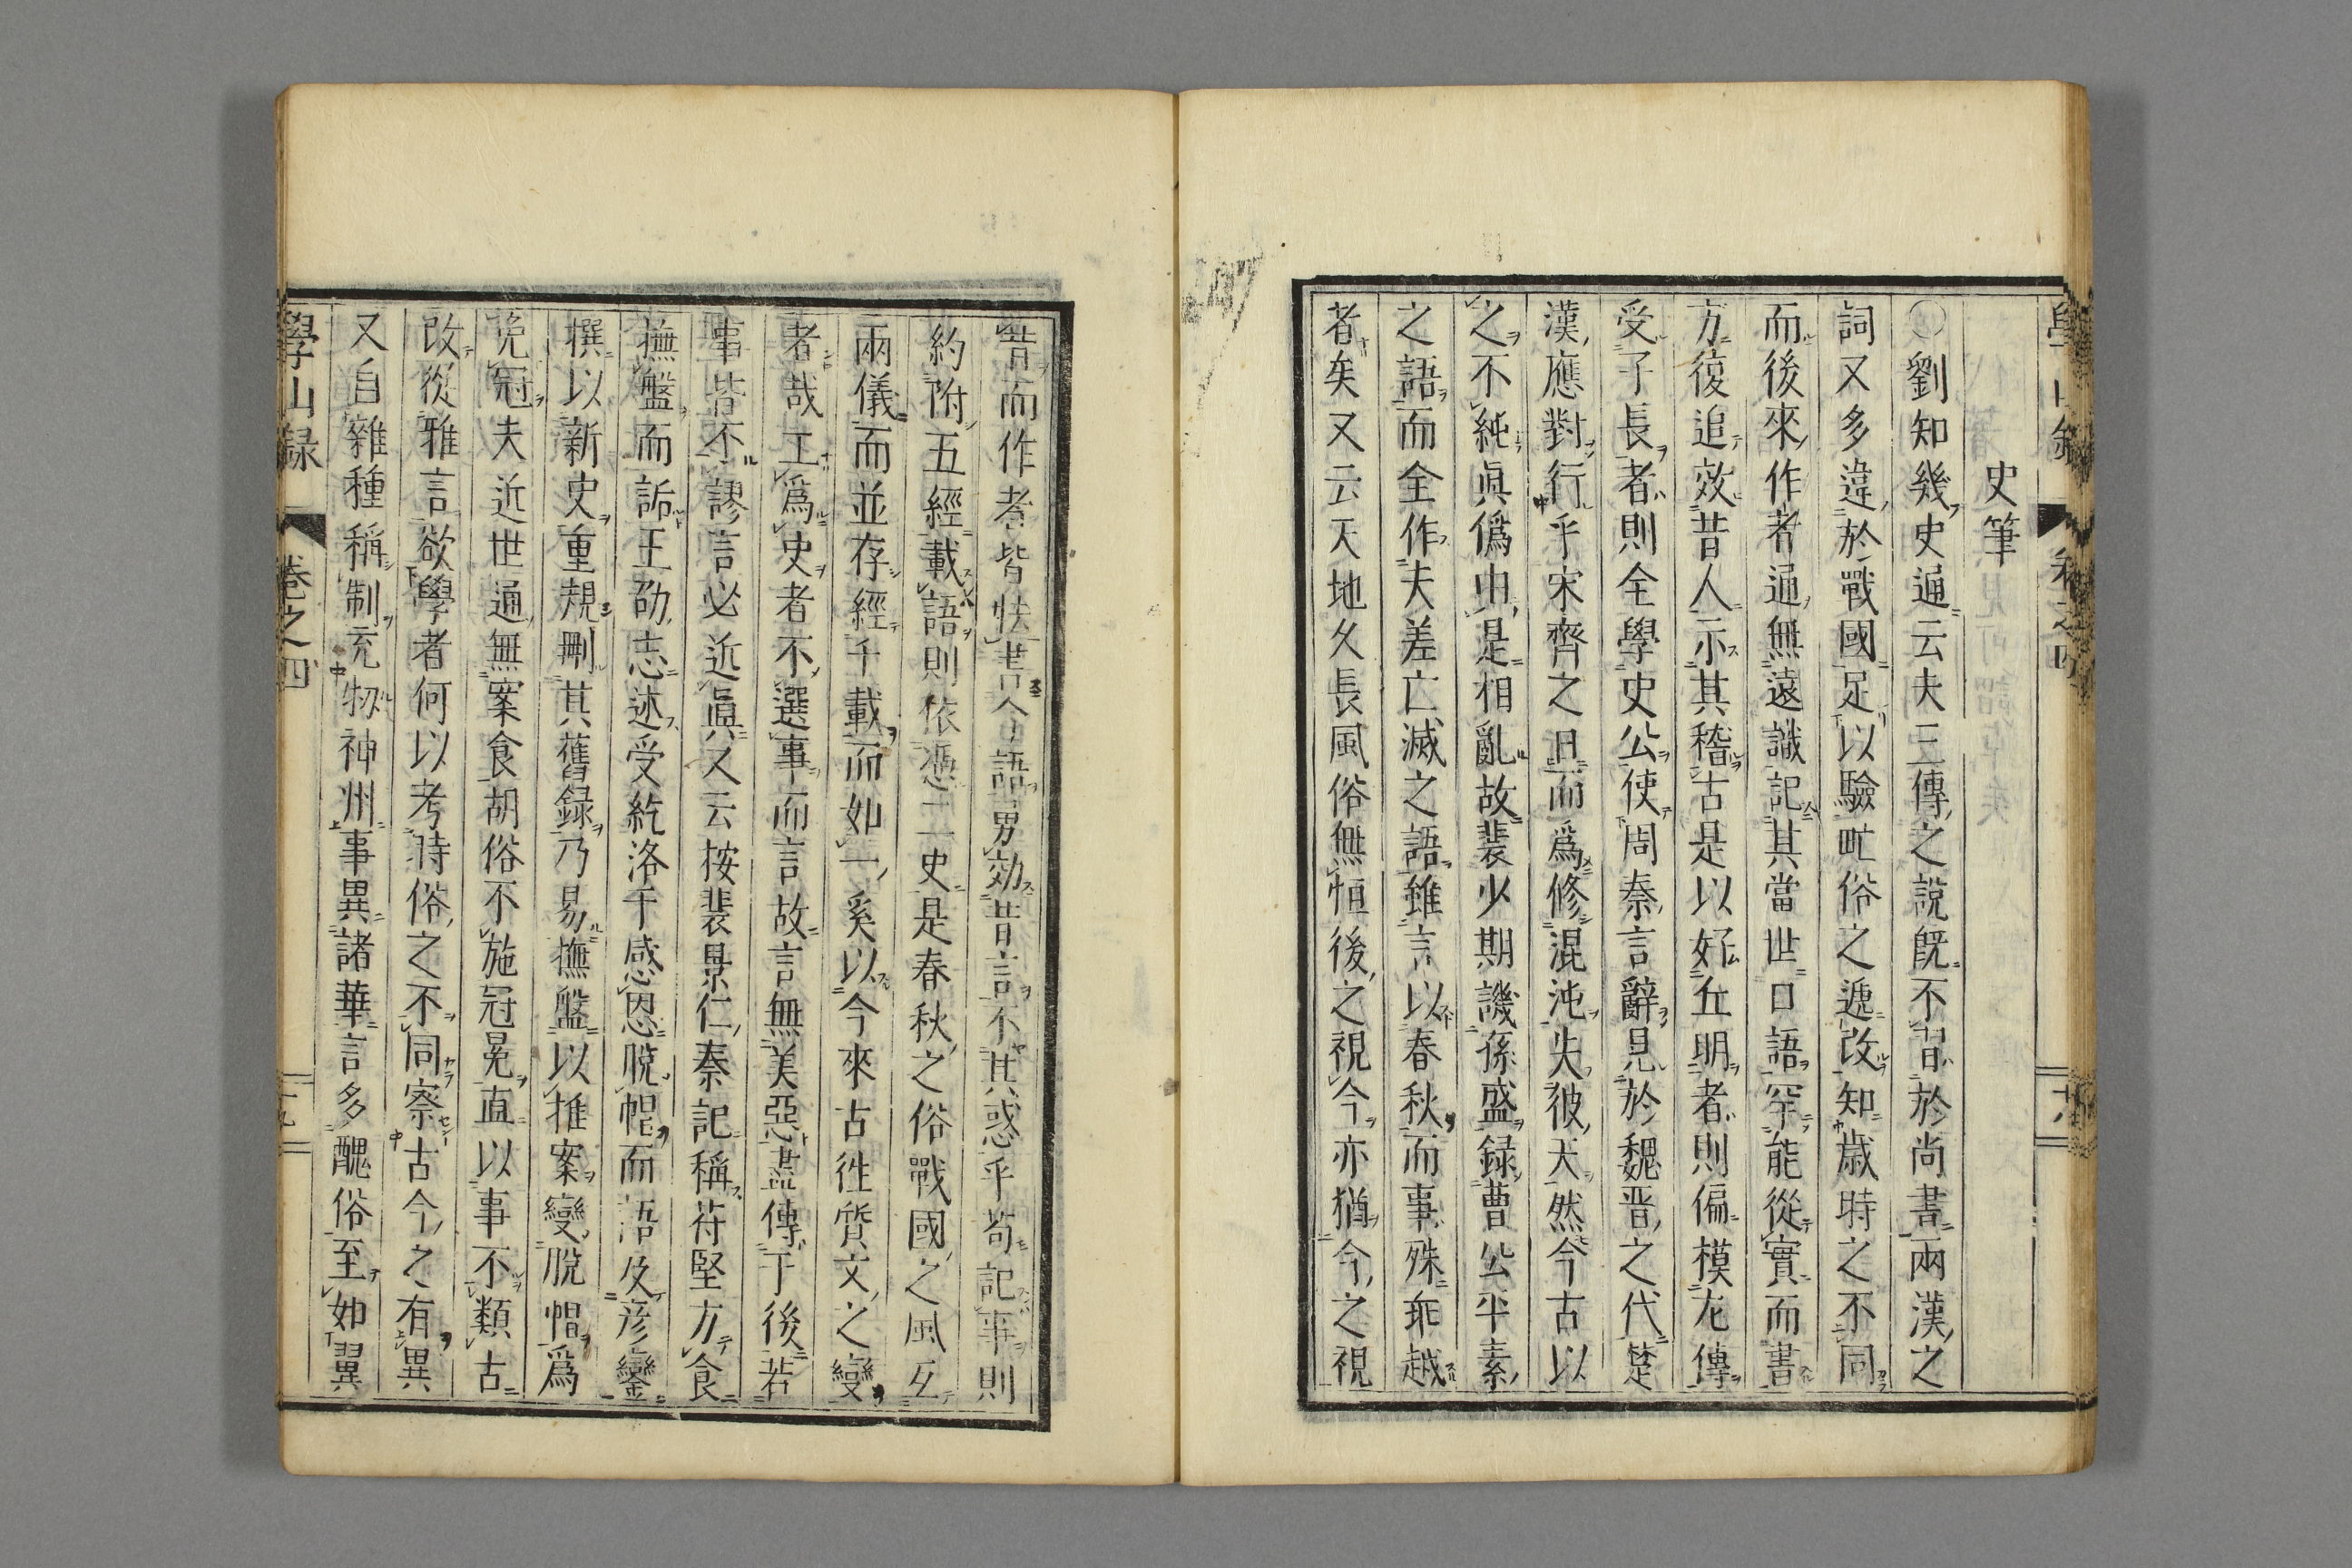 史筆
〇劉知幾史通云夫三傳之說旣不習於尚書兩漢之
詞又多違於戰國足以驗甿俗之遞改知歲時之不同
而後來作者通無遠識記其當世口語罕能從實而書
方復追效昔人示其稽古是以好丘明者則偏模左傳
受子長者則全學史公使周秦言辭見於魏晋之代楚
漢應對行乎宋齊之日而爲修混沌失彼天然今古以
之不純眞僞由是相亂故裴少期譏孫盛録曹公平素
之語而全作夫差亡滅之語雖言以春秋而事殊乖越
者矣又云天地久長風俗無恒後之視今亦猶今之視
昔而作者皆怯書今語勇効昔言不其惑乎苟記事則
約附五經載語則依憑三史是春秋之俗戰國之風亙
兩儀而並存經千載而如一奚以今來古徃質文之變
者哉工爲史者不選事而言故言無美惡盡傳于後若
事皆不謬言必近眞又云按裴景仁秦記稱苻堅方食
撫盤而詬王劭志述受紇洛干感恩脫帽而語及彦鸞
撰以新史重規刪其舊録乃易撫盤以推案變脫帽爲
免冠夫近世通無案食胡俗不施冠冕直以事不類古
改從雅言欲學者何以考時俗之不同察古今之有異
又自雜種稱制充牣神州事異諸華言多醜俗至如翼
學山録
卷之四